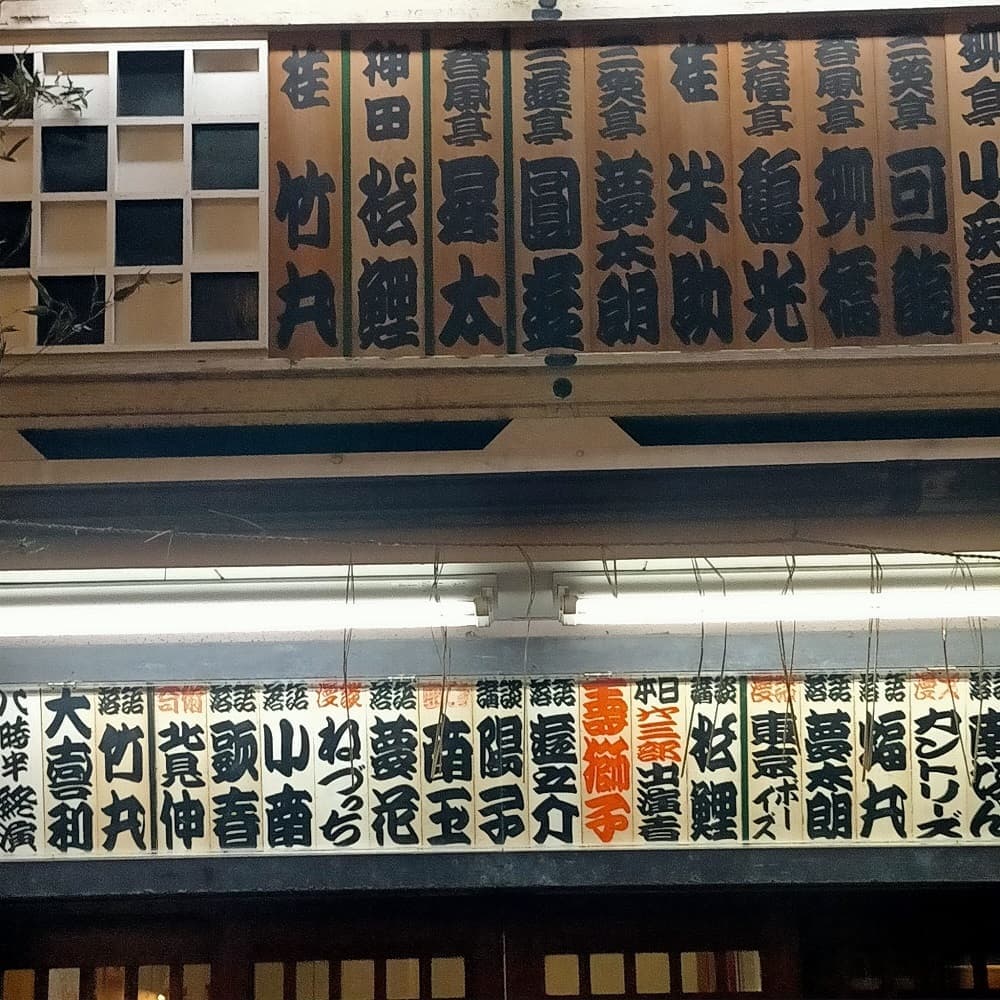 柳亭 小痴楽
三笑亭 可龍
春風亭 柳橋
笑福亭 鶴光
桂 米助
三笑亭 夢太朗
三遊亭 圓遊
春風亭 昇太
神田 松鯉
桂 竹丸
漫才 カントリーズ
落語
東京ボーイズ
落語 夢太朗
講談 松鯉
本日 出演者
寿獅子
落語 遊之介
講談 陽子
南玉
落語 夢花
漫談 ねづっち
落語 小南
落語 歌春
奇術 北見伸
落語 竹丸
大喜利
八時半終演